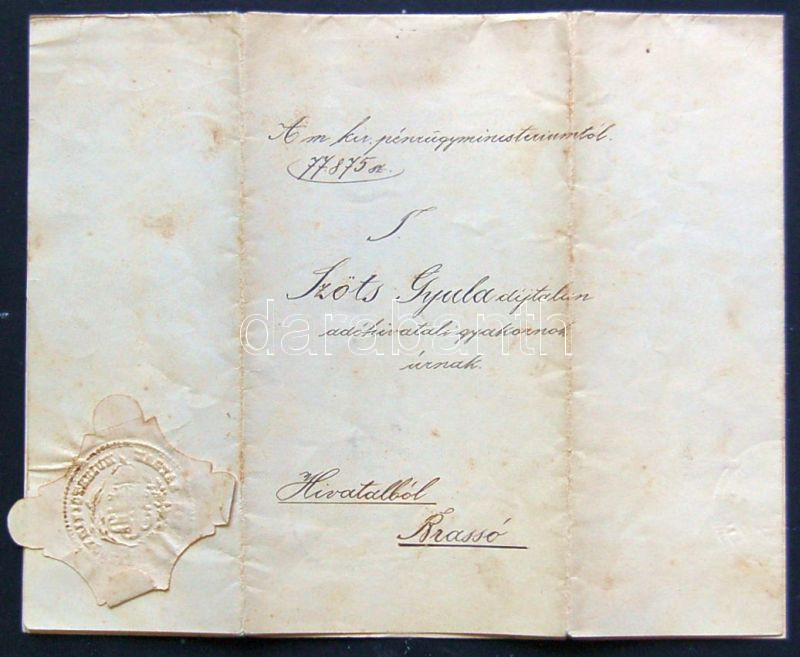 A m. kir. pénzügyministeriumtól.
77875 sz.
T.
Szőts Gyula díjtalan
adóhivatali gyakornok
úrnak.
Hivatalból
Brassó
darabanth